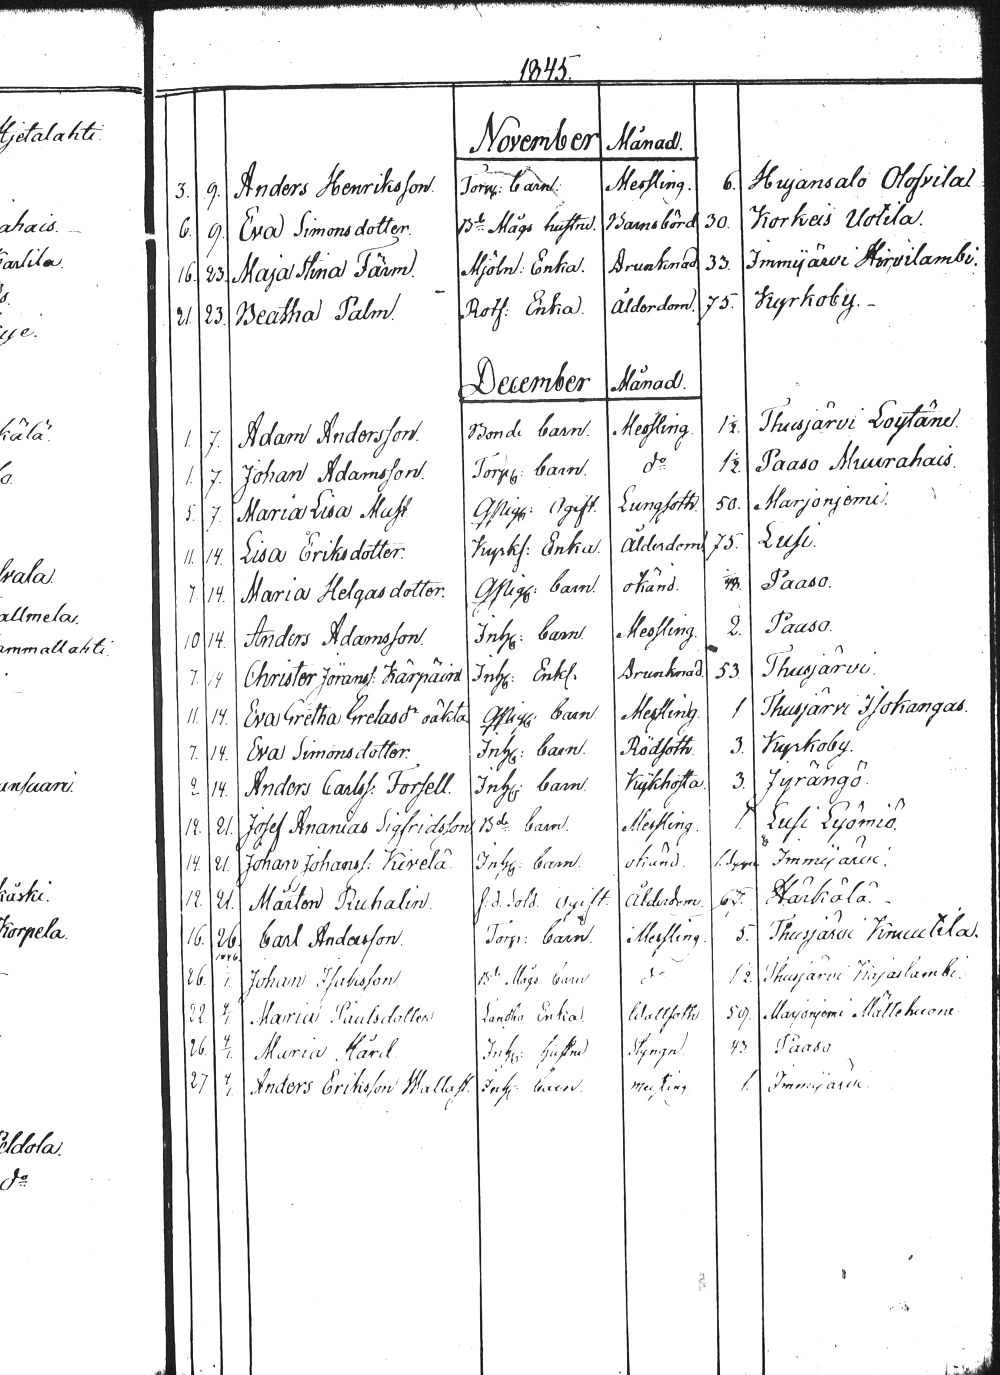 1845.
Hjetalahti.
ahais.
Karlila.
November Månad.
3. 9. Anders Henriksson. Torp: barn. Messling. 6. Hujansalo Olofvila
6. 9. Eva Simonsdotter. Bde Mågs hustru. Barnsbörd 30. Korkeis Uotila.
16. 23. Maja Stina Färm. Mjöln: Enka. Drunknad 33. Immijärvi Hirvilambi.
21. 23. Beatha Palm. Rotf: Enka. Ålderdom. 75. Kyrkoby.
December Månad.
1. 7. Adam Andersson. Bonde barn. Messling. 1½. Thusjärvi Löytänä.
1. 7. Johan Adamsson. Torp: barn. do 1½. Paaso Muurahais.
5. 7. Maria Lisa Must Ogift. Lungsoth 50. Marjonjemi.
11. 14. Lisa Eriksdotter. Kyrks: Enka. Ålderdom 75. Lusi.
7. 14. Maria Helgasdotter. barn. okänd. Paaso.
10 14. Anders Adamsson. Inh: barn. Messling. 2. Paaso.
7. 14 Christer Jöranss: Kärpäinen Inh: Enkl. Drunknad 53. Thusjärvi.
11. 14. Eva Gretha Gretasdr oäkta barn Messling. 1 Thusjärvi Isokangas.
7. 14. Eva Simonsdotter. Inh: barn. Rödsoth. 3. Kyrkoby.
2. 14. Anders Carlss: Forsell. Inh: barn. Kykhosta. 3. Jyrängö.
12. 21. Josef Ananias Sigfridsson Bde barn. Messling. 1. Lusi Lyömiö.
14. 21. Johan Johanss: Kivelä. Inh: barn. okänd. Immijärvi.
12. 21. Mårten Ruhalin. f.d. Sold. Ogift. Ålderdom. 67. Härkälä.
16. 26. Carl Andersson. Torp: barn. Messling. 5. Thusjärvi Knuutila.
1846.
26. 1. Johan Isaksson Bde Mågs barn do 1½. Thusjärvi Kajaslambi.
22 4/1 Maria Paulsdotter Enka Wattsoth. 59. Marjonjemi
26. 4/1. Maria Härd. Inh: hustru Styngn 43 Paaso
27 4/1 Anders Eriksson Wallast. Inh: barn. messling 1. Immijärvi.
kälä.
vala.
allmela.
ammallahti.
unsaari.
käski.
Korpela.
eldola.
do